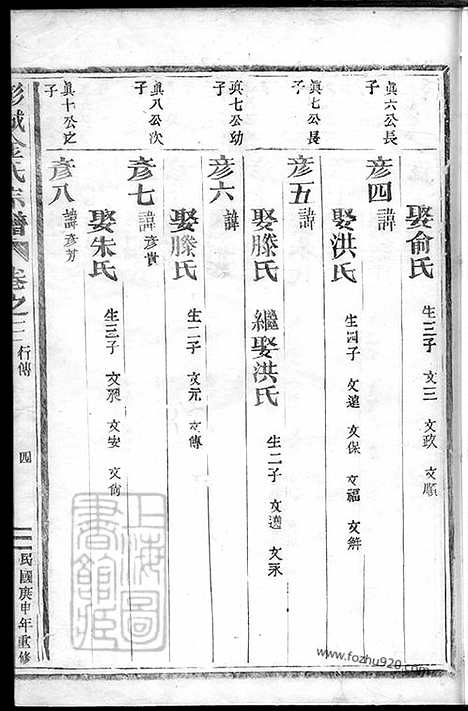 娶俞氏 生三子 文三 文政 文順
眞六公長子
彦四 諱
娶洪氏 生四子 文遠 文保 文福 文斌
眞七公長子
彦五 諱
娶滕氏 繼娶洪氏 生二子 文適 文永
眞七公幼子
彦六 諱
娶滕氏 生二子 文元 文傳
眞八公次子
彦七 諱彦貴
娶朱氏 生三子 文安
眞十公之子
彦八 諱彦芳
彭城金氏宗譜 卷之二 行傳 四 民國庚申年重修
上海圖書館藏
www.fozhu920.com